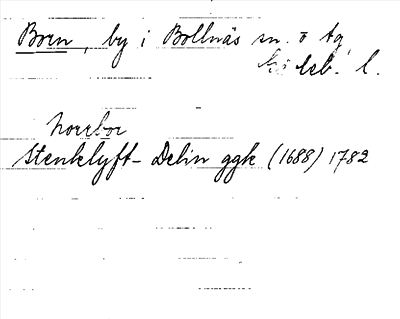 Boren, by i Bollnäs sn. o tg
Gävleb. l.
Norrbor
Stenklyft- Delin ggk (1688) 1782